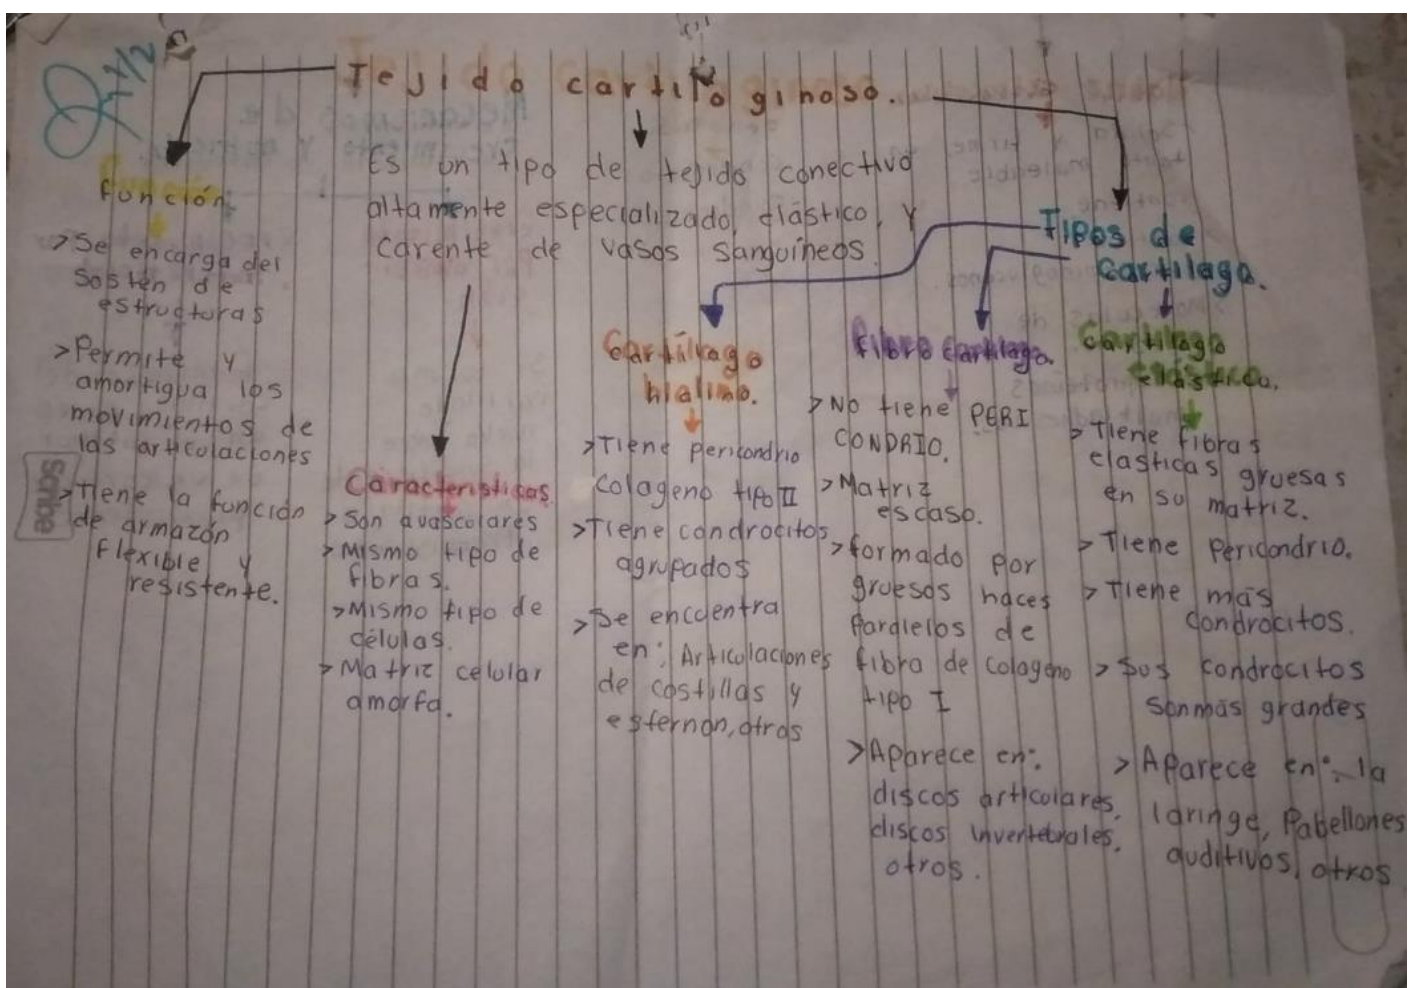 Tejido cartilaginoso.
Es un tipo de tejido conectivo
altamente especializado, elástico, y
carente de vasos sanguíneos.
Función
>Se encarga del
sostén de
estructuras
>Permite y
amortigua los
movimientos de
las articulaciones
>Tiene la función
de armazón
flexible y
resistente.
Scribe
Características
>Son avasculares
>Mismo tipo de
fibras.
>Mismo tipo de
células.
>Matriz celular
amorfa.
Tipos de
cartilago.
Cartílago
hialino.
>Tiene pericondrio
colageno tipo II
>Tiene condrocitos
agrupados
>Se encuentra
en: Articulaciones
de costillas y
esternon, otros
Fibro cartilago.
>No tiene PERI
CONDRIO.
>Matriz
escaso.
>formado por
gruesos haces
paralelos de
fibra de colageno
tipo I
>Aparece en:
discos articulares,
discos invertebrales,
otros.
Cartilago
elástico.
>Tiene fibras
elasticas gruesas
en su matriz.
>Tiene pericondrio.
>Tiene más
condrocitos.
>Sus condrocitos
son más grandes
>Aparece en: la
laringe, Pabellones
auditivos, otros